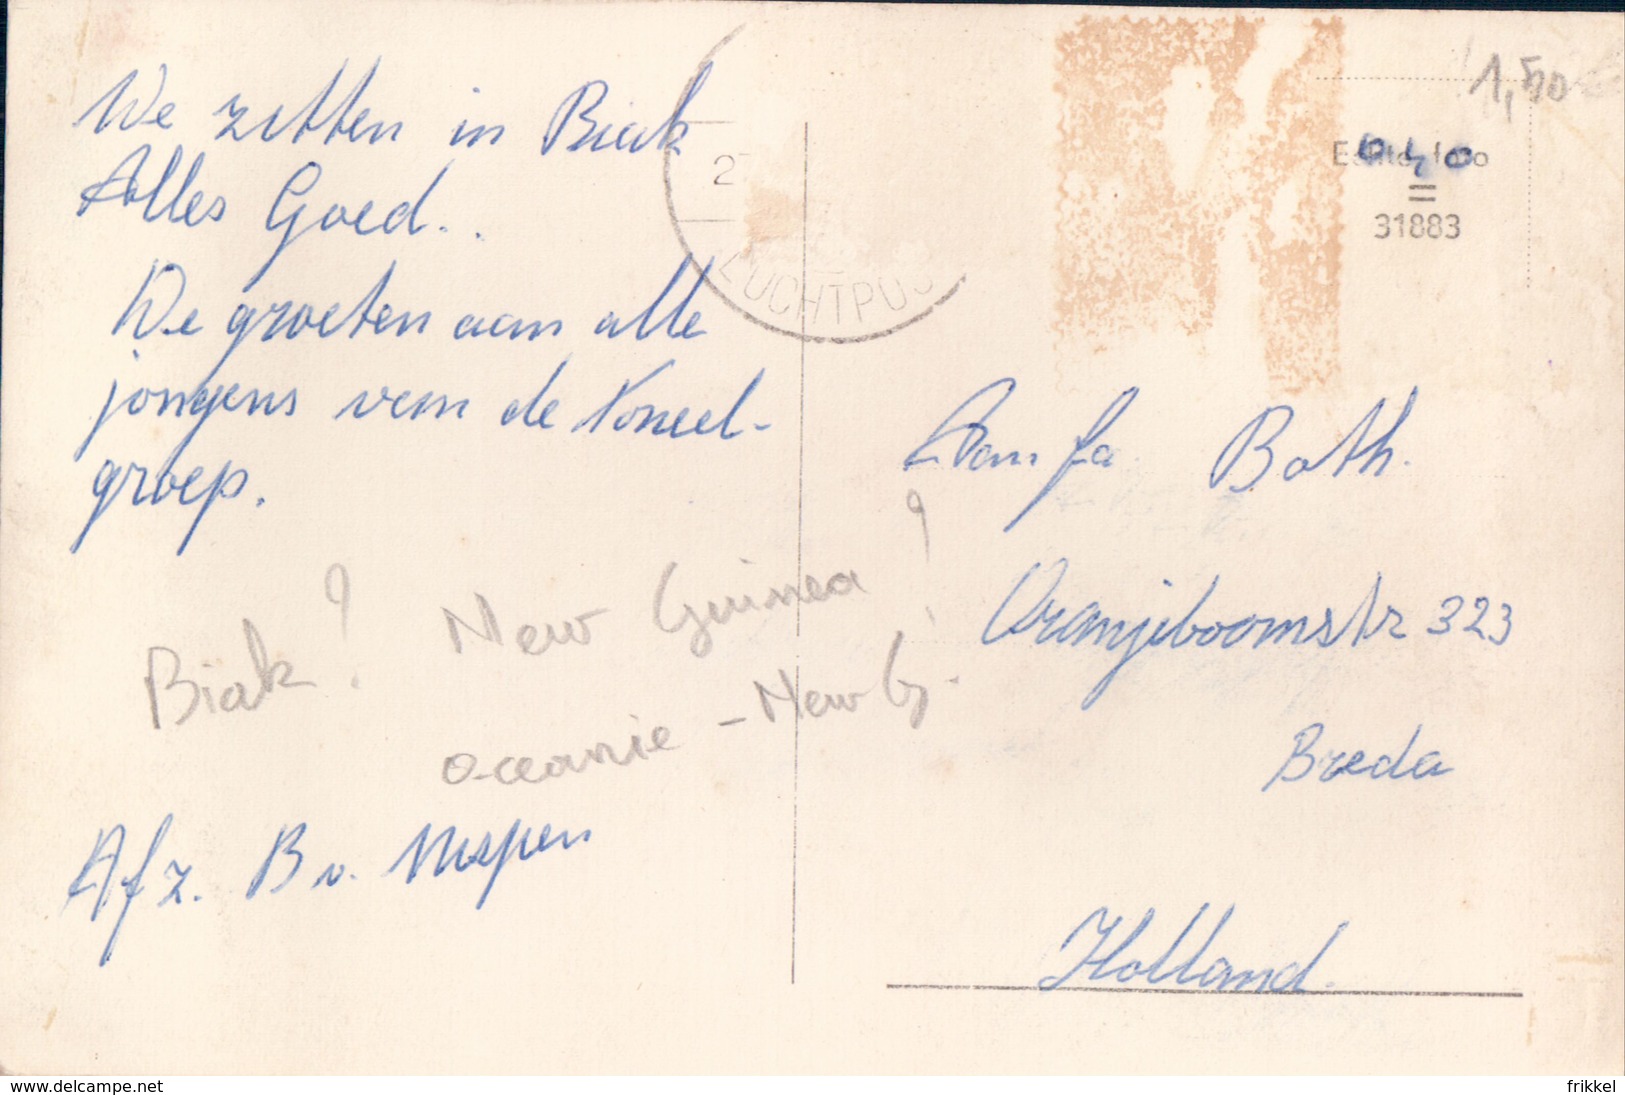 We zitten in Biak
Alles Goed..
We groeten aan alle
jongens van de
groep.
Biak? New Guinea?
oceanie - New G.
Afz. B v. Nispen
LUCHTPOS
1,50
Echte foto
=
31883
Aan fa. Bath.
Oranjeboomstr 323
Breda
Holland.
www.delcampe.net
frikkel